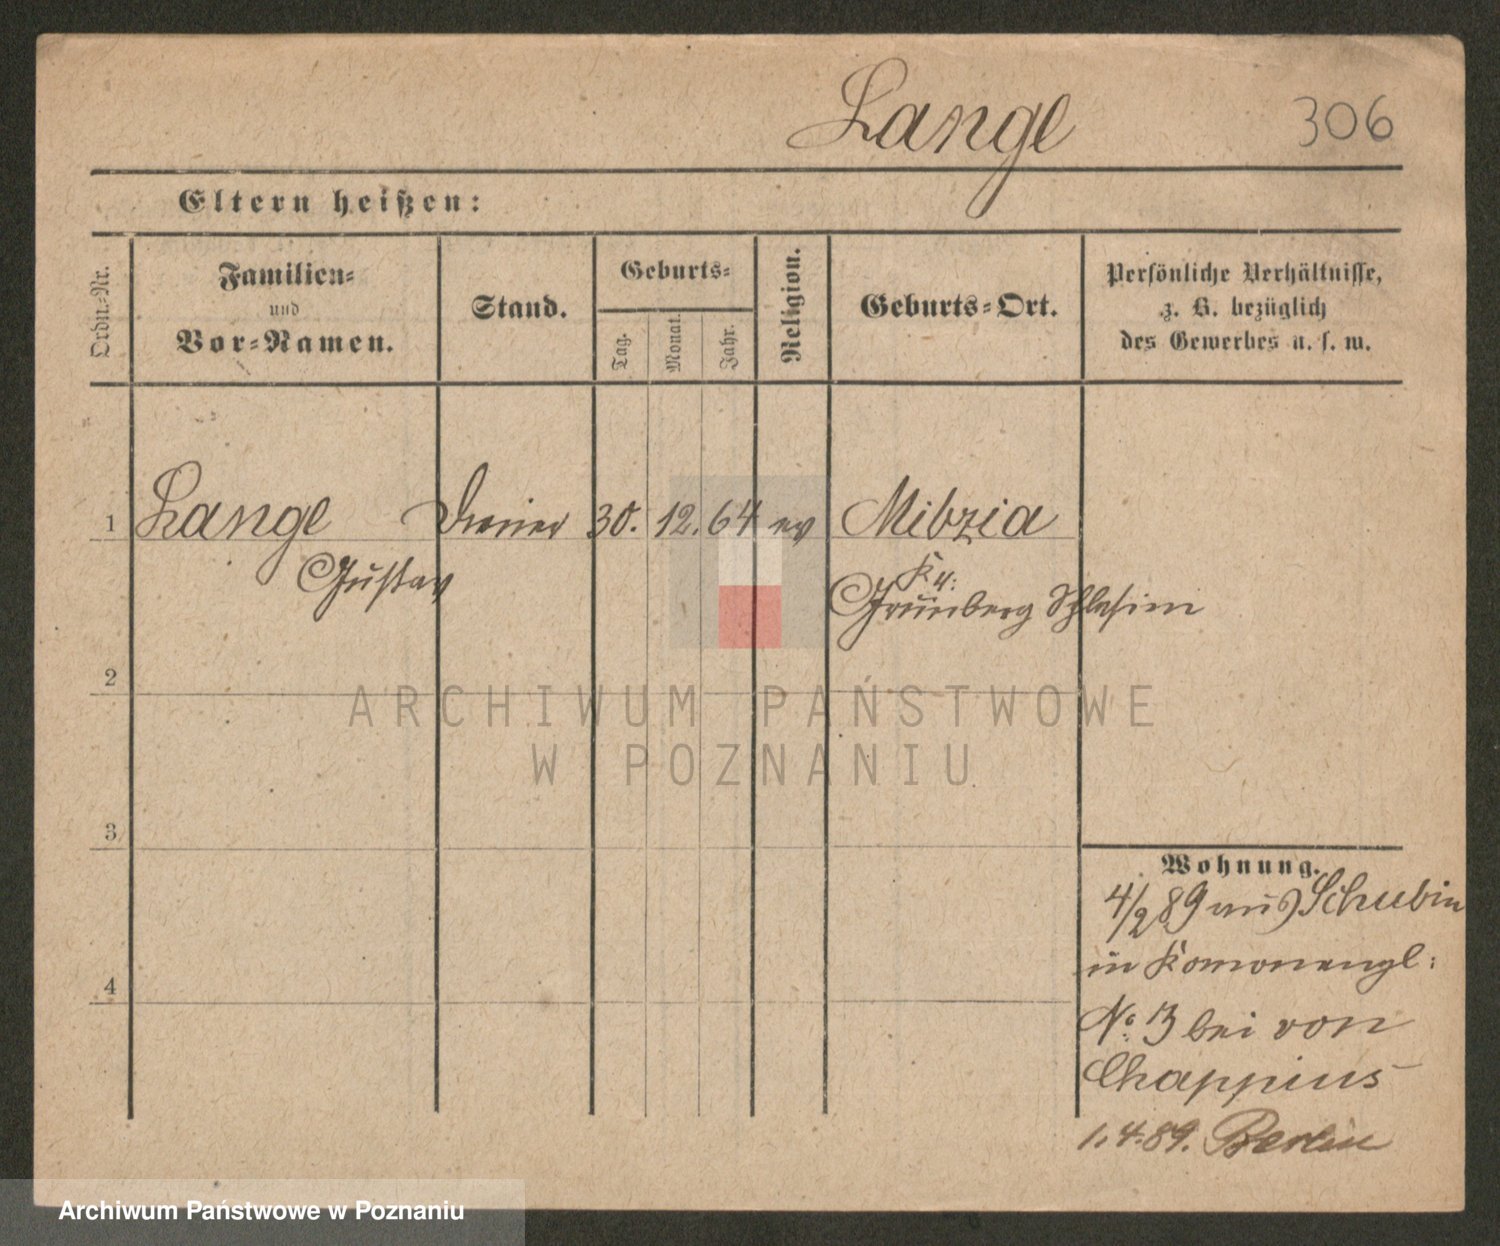 Lange
306
Eltern heißen:
Ordn.-Nr.
Familien-
und
Vor-Namen.
Stand.
Geburts-
Tag.
Monat.
Jahr.
Religion.
Geburts-Ort.
Persönliche Verhältnisse,
z. B. bezüglich
des Gewerbes u. s. w.
1 Lange Diener 30. 12. 64 ev Milzia
Gustav
Kr.
Grünberg Schlesien
2
ARCHIWUM PAŃSTWOWE
W POZNANIU
3
4
Wohnung.
4/2 89 aus Schubin
in
No 3 bei von
Chappuis
1.4.89. Berlin
Archiwum Państwowe w Poznaniu